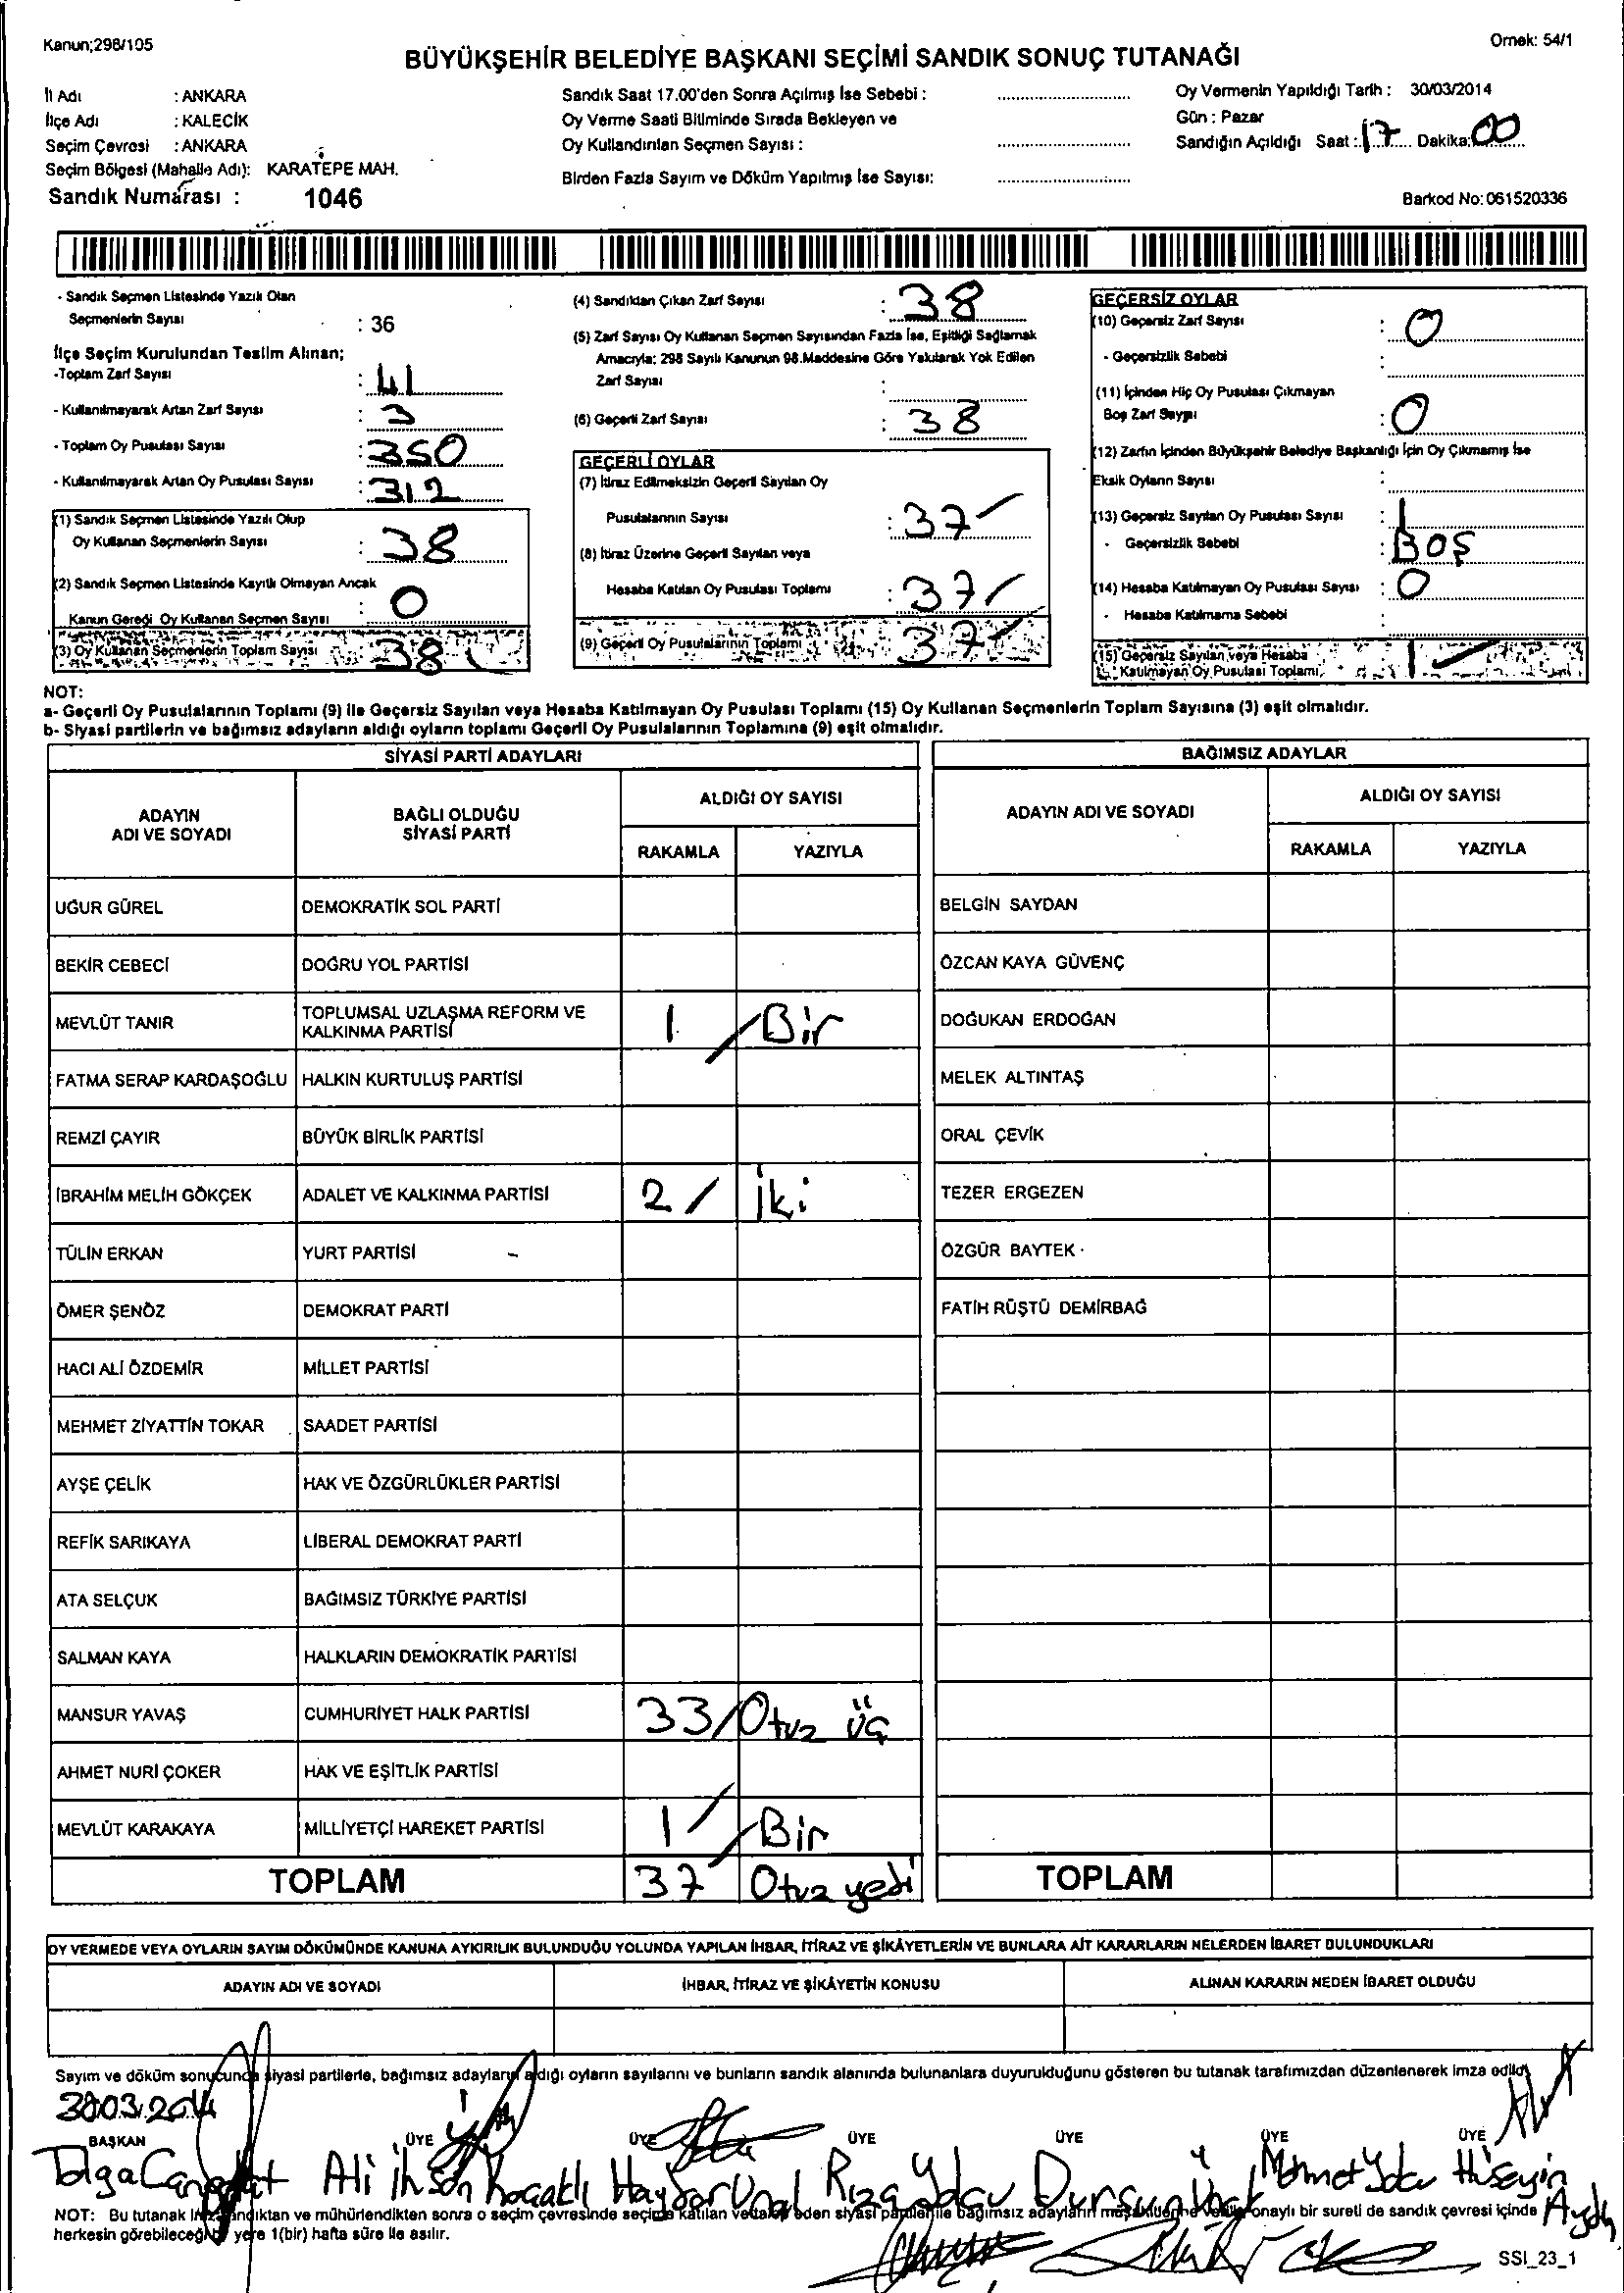 Kanun;298/105
Ornek: 54/1
BÜYÜKŞEHİR BELEDİYE BAŞKANI SEÇİMİ SANDIK SONUÇ TUTANAĞI
İl Adı : ANKARA
İlçe Adı : KALECİK
Seçim Çevresi : ANKARA
Seçim Bölgesi (Mahalle Adı): KARATEPE MAH.
Sandık Numarası : 1046
Sandık Saat 17.00'den Sonra Açılmış İse Sebebi :
Oy Verme Saati Bitiminde Sırada Bekleyen ve
Oy Kullandırılan Seçmen Sayısı :
Birden Fazla Sayım ve Döküm Yapılmış İse Sayısı:
Oy Vermenin Yapıldığı Tarih : 30/03/2014
Gün : Pazar
Sandığın Açıldığı Saat : 17 Dakika: 00
Barkod No: 061520336
- Sandık Seçmen Listesinde Yazılı Olan
Seçmenlerin Sayısı : 36
İlçe Seçim Kurulundan Teslim Alınan;
-Toplam Zarf Sayısı : 41
- Kullanılmayarak Artan Zarf Sayısı : 3
- Toplam Oy Pusulası Sayısı : 350
- Kullanılmayarak Artan Oy Pusulası Sayısı : 312
(1) Sandık Seçmen Listesinde Yazılı Olup
Oy Kullanan Seçmenlerin Sayısı : 38
(2) Sandık Seçmen Listesinde Kayıtlı Olmayan Ancak
Kanun Gereği Oy Kullanan Seçmen Sayısı : 0
(3) Oy Kullanan Seçmenlerin Toplam Sayısı : 38
(4) Sandıktan Çıkan Zarf Sayısı : 38
(5) Zarf Sayısı Oy Kullanan Seçmen Sayısından Fazla İse, Eşitliği Sağlamak
Amacıyla; 298 Sayılı Kanunun 98.Maddesine Göre Yakılarak Yok Edilen
Zarf Sayısı :
(6) Geçerli Zarf Sayısı : 38
GEÇERLİ OYLAR
(7) İtiraz Edilmeksizin Geçerli Sayılan Oy
Pusulalarının Sayısı : 37
(8) İtiraz Üzerine Geçerli Sayılan veya
Hesaba Katılan Oy Pusulası Toplamı : 37
(9) Geçerli Oy Pusulalarının Toplamı : 37
GEÇERSİZ OYLAR
(10) Geçersiz Zarf Sayısı : 0
- Geçersizlik Sebebi :
(11) İçinden Hiç Oy Pusulası Çıkmayan
Boş Zarf Sayısı : 0
(12) Zarfın İçinden Büyükşehir Belediye Başkanlığı İçin Oy Çıkmamış İse
Eksik Oyların Sayısı :
(13) Geçersiz Sayılan Oy Pusulası Sayısı : 1
- Geçersizlik Sebebi : BOŞ
(14) Hesaba Katılmayan Oy Pusulası Sayısı : 0
- Hesaba Katılmama Sebebi :
(15) Geçersiz Sayılan veya Hesaba
Katılmayan Oy Pusulası Toplamı, 1
NOT:
a- Geçerli Oy Pusulalarının Toplamı (9) ile Geçersiz Sayılan veya Hesaba Katılmayan Oy Pusulası Toplamı (15) Oy Kullanan Seçmenlerin Toplam Sayısına (3) eşit olmalıdır.
b- Siyasi partilerin ve bağımsız adayların aldığı oyların toplamı Geçerli Oy Pusulalarının Toplamına (9) eşit olmalıdır.
SİYASİ PARTİ ADAYLARI
ADAYIN ADI VE SOYADI
BAĞLI OLDUĞU SİYASİ PARTİ
ALDIĞI OY SAYISI
RAKAMLA YAZIYLA
UĞUR GÜREL DEMOKRATİK SOL PARTİ
BEKİR CEBECİ DOĞRU YOL PARTİSİ
MEVLÜT TANIR TOPLUMSAL UZLAŞMA REFORM VE KALKINMA PARTİSİ 1 / Bir
FATMA SERAP KARDAŞOĞLU HALKIN KURTULUŞ PARTİSİ
REMZİ ÇAYIR BÜYÜK BİRLİK PARTİSİ
İBRAHİM MELİH GÖKÇEK ADALET VE KALKINMA PARTİSİ 2 / İki
TÜLİN ERKAN YURT PARTİSİ
ÖMER ŞENÖZ DEMOKRAT PARTİ
HACI ALİ ÖZDEMİR MİLLET PARTİSİ
MEHMET ZİYATTİN TOKAR SAADET PARTİSİ
AYŞE ÇELİK HAK VE ÖZGÜRLÜKLER PARTİSİ
REFİK SARIKAYA LİBERAL DEMOKRAT PARTİ
ATA SELÇUK BAĞIMSIZ TÜRKİYE PARTİSİ
SALMAN KAYA HALKLARIN DEMOKRATİK PARTİSİ
MANSUR YAVAŞ CUMHURİYET HALK PARTİSİ 33 / Otuz üç
AHMET NURİ ÇOKER HAK VE EŞİTLİK PARTİSİ
MEVLÜT KARAKAYA MİLLİYETÇİ HAREKET PARTİSİ 1 / Bir
TOPLAM 37 Otuz yedi
BAĞIMSIZ ADAYLAR
ADAYIN ADI VE SOYADI
ALDIĞI OY SAYISI
RAKAMLA YAZIYLA
BELGİN SAYDAN
ÖZCAN KAYA GÜVENÇ
DOĞUKAN ERDOĞAN
MELEK ALTINTAŞ
ORAL ÇEVİK
TEZER ERGEZEN
ÖZGÜR BAYTEK
FATİH RÜŞTÜ DEMİRBAĞ
TOPLAM
OY VERMEDE VEYA OYLARIN SAYIM DÖKÜMÜNDE KANUNA AYKIRILIK BULUNDUĞU YOLUNDA YAPILAN İHBAR, İTİRAZ VE ŞİKÂYETLERİN VE BUNLARA AİT KARARLARIN NELERDEN İBARET BULUNDUKLARI
ADAYIN ADI VE SOYADI
İHBAR, İTİRAZ VE ŞİKÂYETİN KONUSU
ALINAN KARARIN NEDEN İBARET OLDUĞU
Sayım ve döküm sonucunda siyasi partilerle, bağımsız adayların aldığı oyların sayılarını ve bunların sandık alanında bulunanlara duyurulduğunu gösteren bu tutanak tarafımızdan düzenlenerek imza edildi
30.03.2014
BAŞKAN ÜYE ÜYE ÜYE ÜYE ÜYE ÜYE
Tolga Ali İhsan Kocaklı Haydar Ünal Rıza Yolcu Dursun Mehmet Hüseyin Aydın
NOT: Bu tutanak imzalandıktan ve mühürlendikten sonra o seçim çevresinde seçime katılan ve eden siyasi partiler ile bağımsız adayların onaylı bir sureti de sandık çevresi içinde
herkesin görebileceği bir yere 1(bir) hafta süre ile asılır.
SSI_23_1